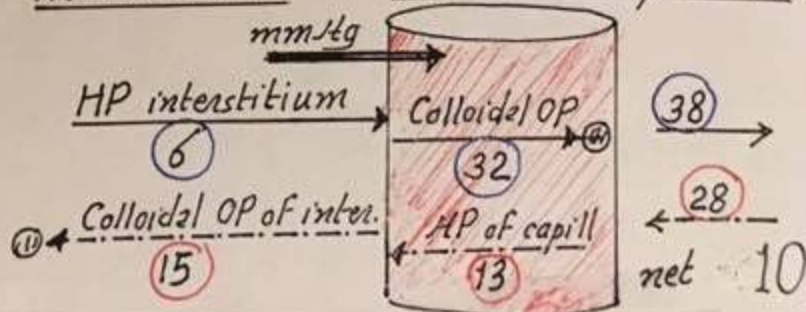 mmHg
HP interstitium Colloidal OP 38
6 32
Colloidal OP of inter. HP of capill 28
15 13 net 10